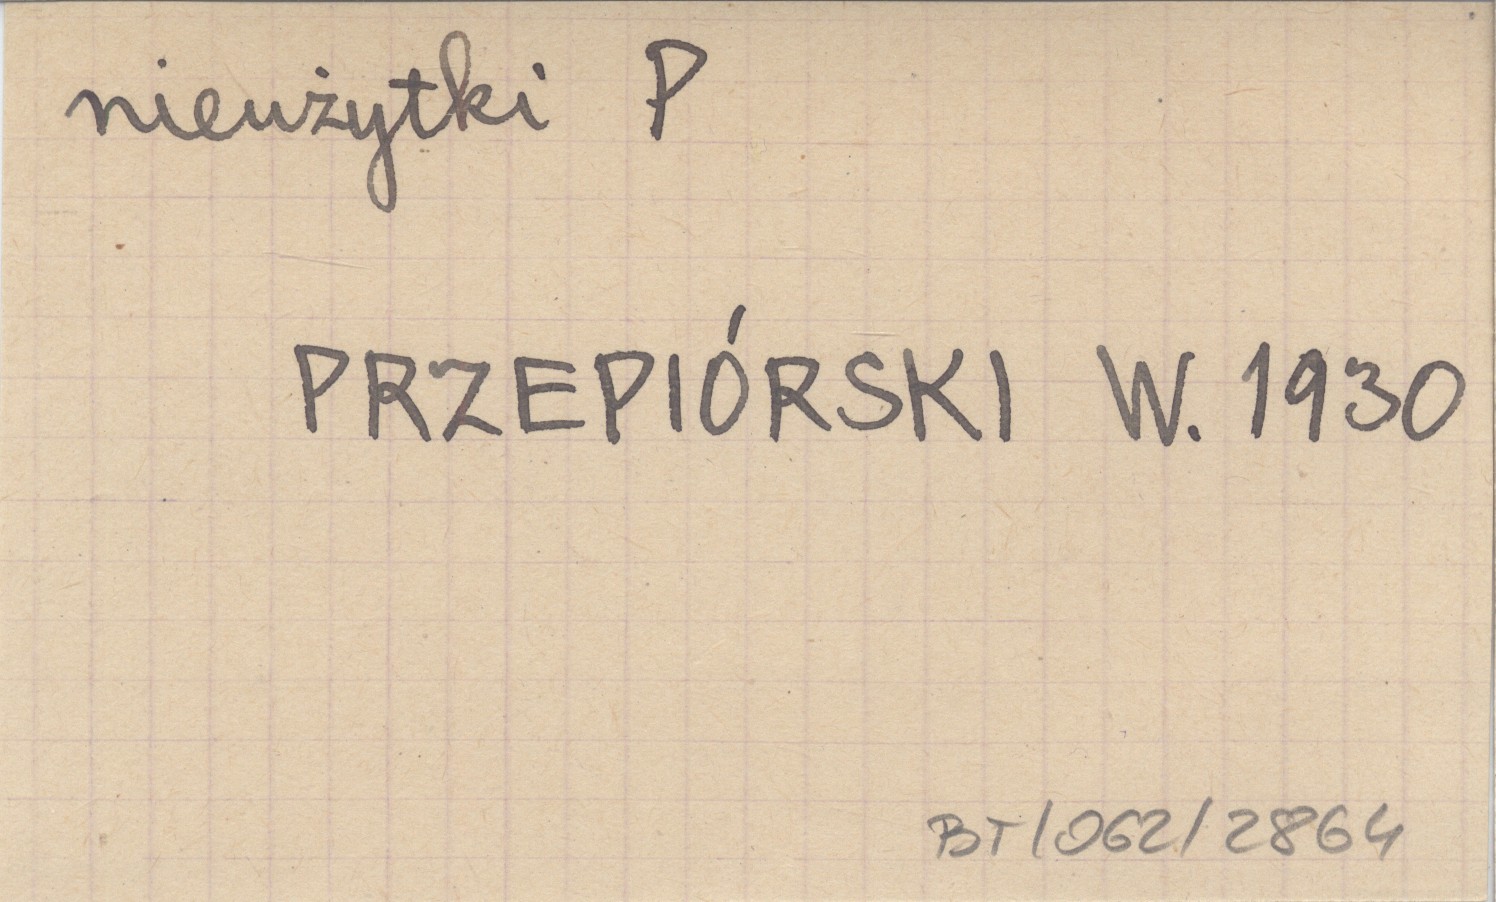 nieużytki P
PRZEPIÓRSKI W. 1930
BT/062/2864